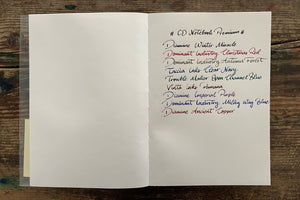 # CD Notebook Premium #
Diamine Winter Miracle
Dominant Industry Christmas Red
Dominant Industry Autumn Forest
Taccia inks Clear Navy
Trouble Maker Boon Channel Blue
Vinta inks
Diamine Imperial Purple
Dominant Industry Milky Way Blue
Diamine Ancient Copper